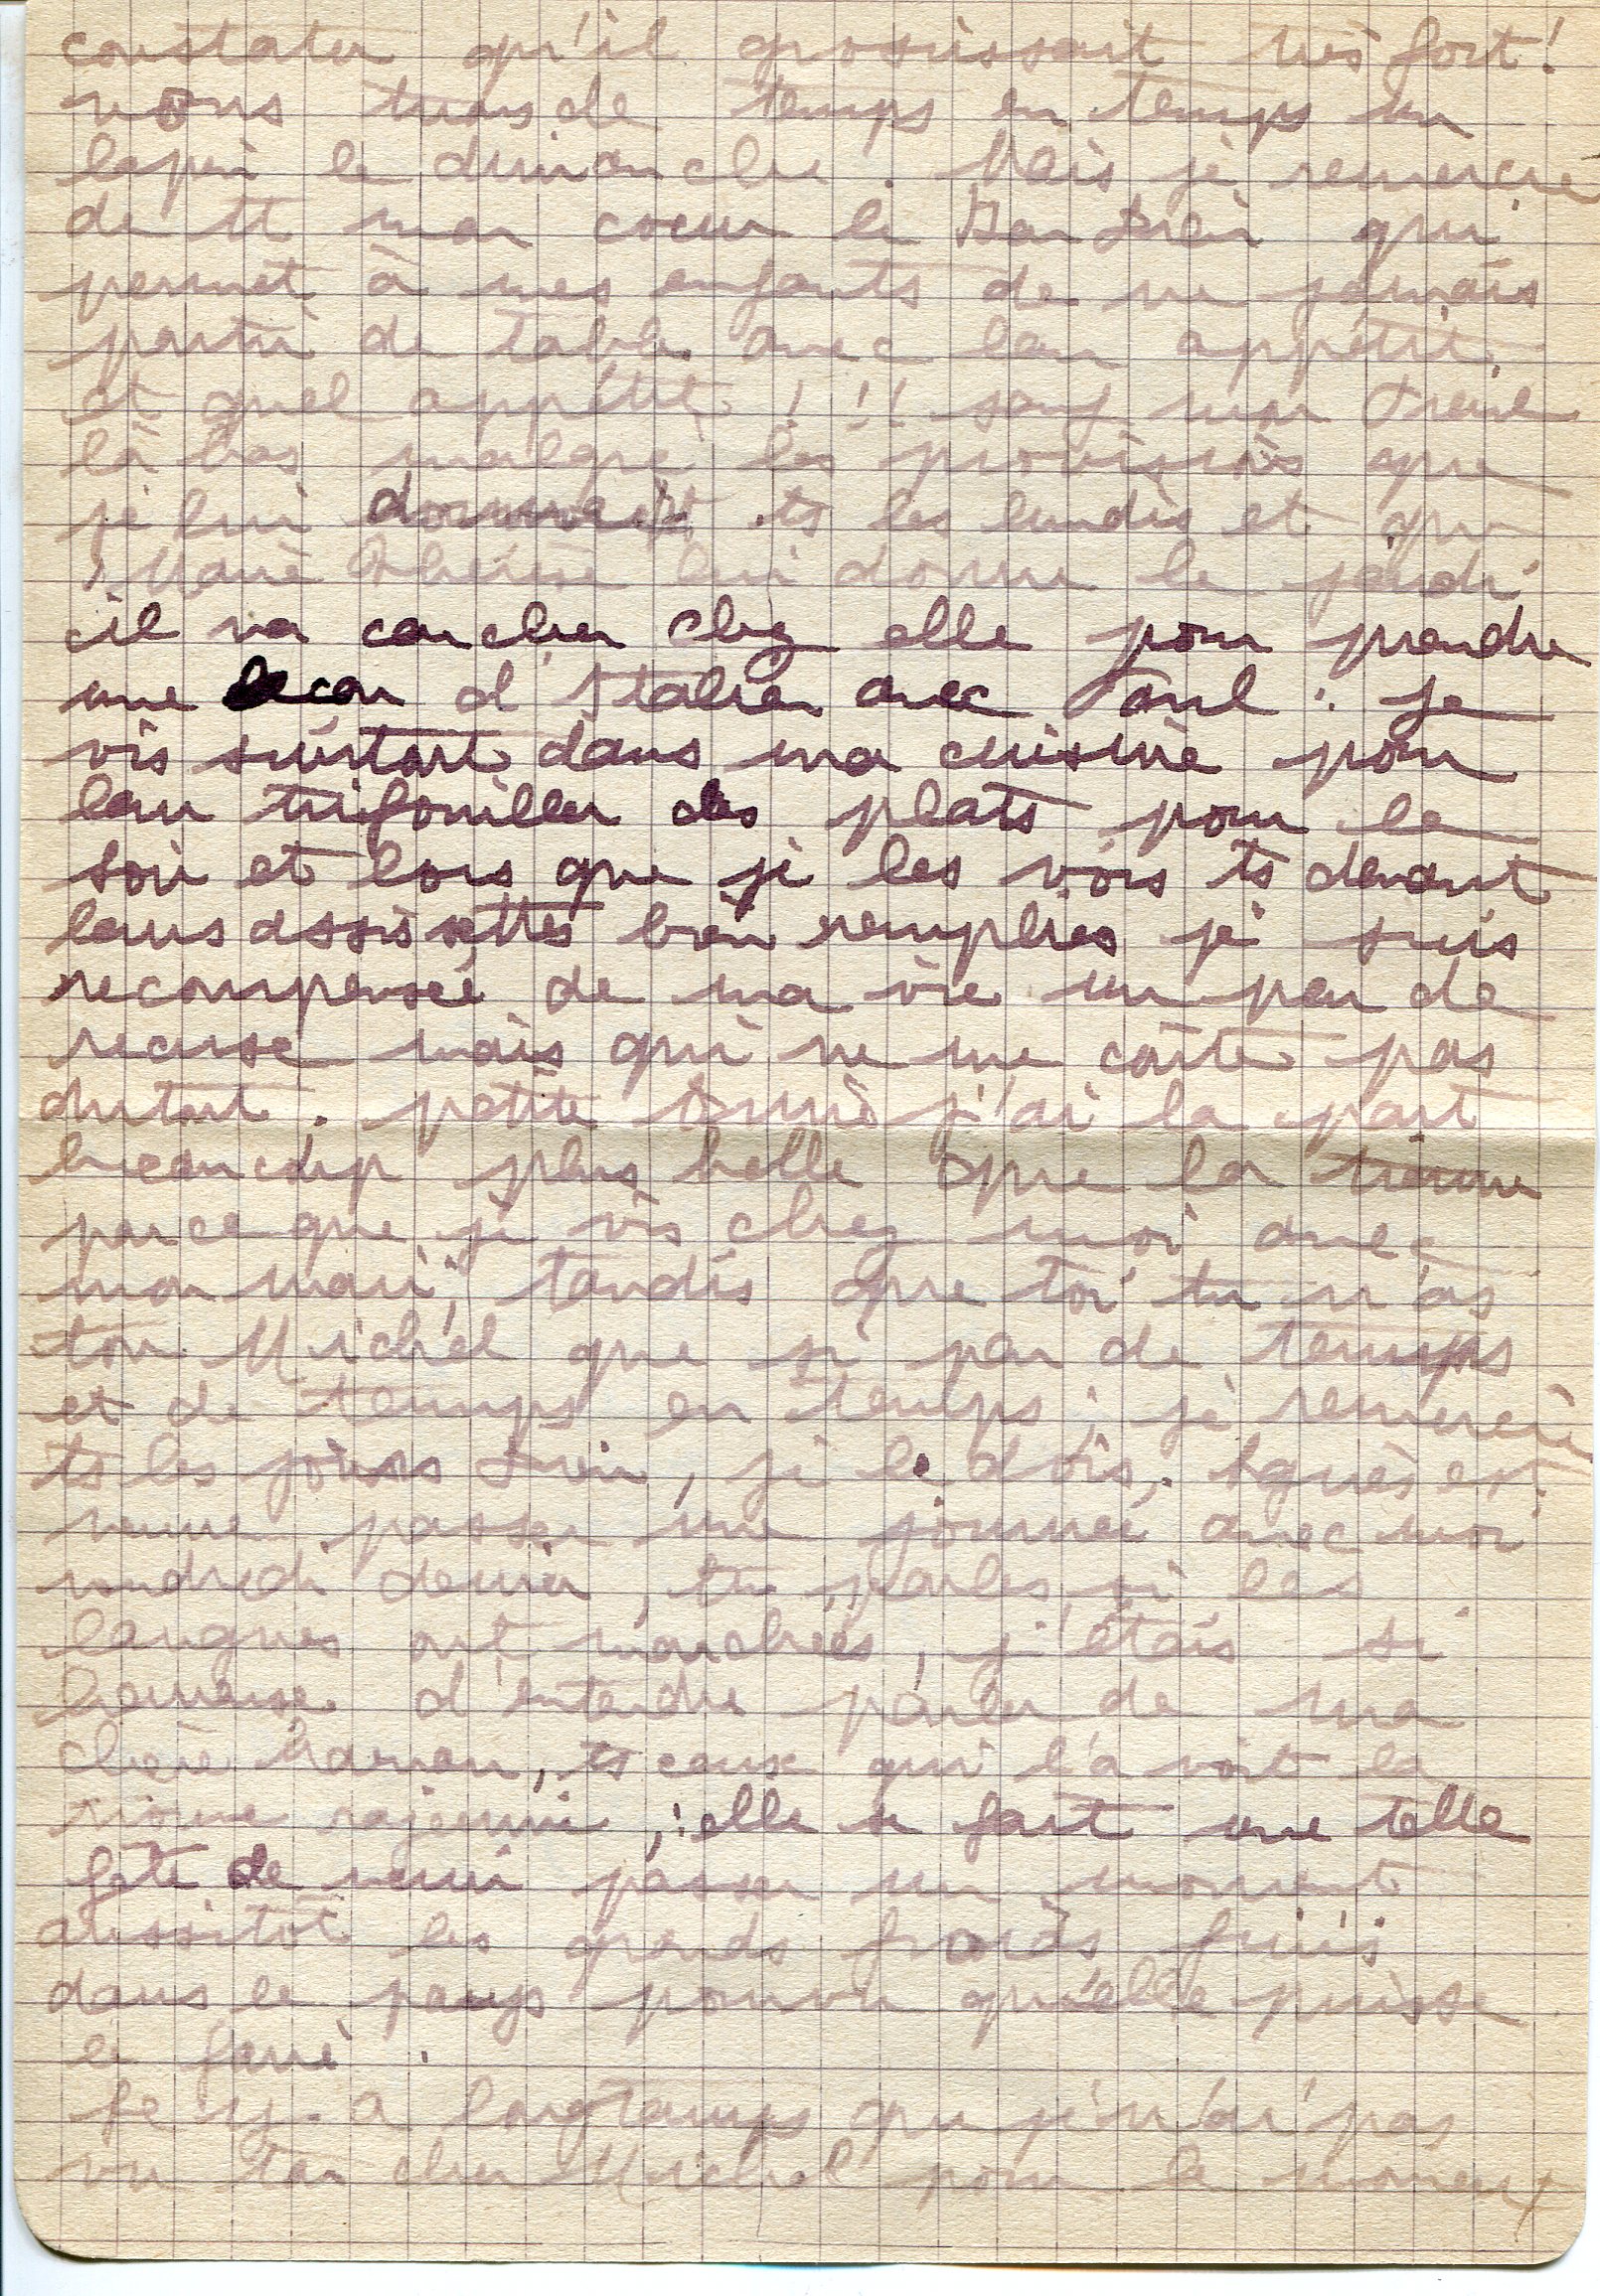 constater qu'il grossissait très fort!
nous tuons de temps en temps un
lapin le dimanche. Mais je remercie
de tt mon coeur le Bon Dieu qui
permet à mes enfants de ne jamais
partir de table avec leur appétit,
et quel appétit!!! sauf mon
là bas malgré les provisions que
je lui donnait ts les lundis et que
Marie Thérèse lui donne le jeudi
il va coucher chez elle pour prendre
une lecon d'Italien avec Paul : je
vis surtout dans ma cuisine pour
leur trifouiller des plats pour le
soir et lors que je les vois ts devant
leurs assissettes bien remplies je suis
recompensée de ma vie un peu de
recluse mais qui ne me coûte pas
dutout. petite j'ai la part
beaucoup plus belle que la tienne
parceque je vis chez moi avec
mon mari, tandis que toi tu n'as
ton Michel que si peu de temps
et de temps en temps ; je remercie
ts les jours Dieu, je le dois. Agnès est
venue passer une journée avec moi
vendredi dernier, tu parles si les
langues ont marchées, j'étais si
heureuse d'entendre parler de ma
chère Maman, ts ceux qui l'a voit la
trouve rajeunie, elle se fait une telle
fête de venir passer un moment
aussitôt les grands froids finis
dans le pays pourvu qu'elle puisse
le faire.
Je y a longtemps que je n'ai pas
vu ton cher Michel pour le moment